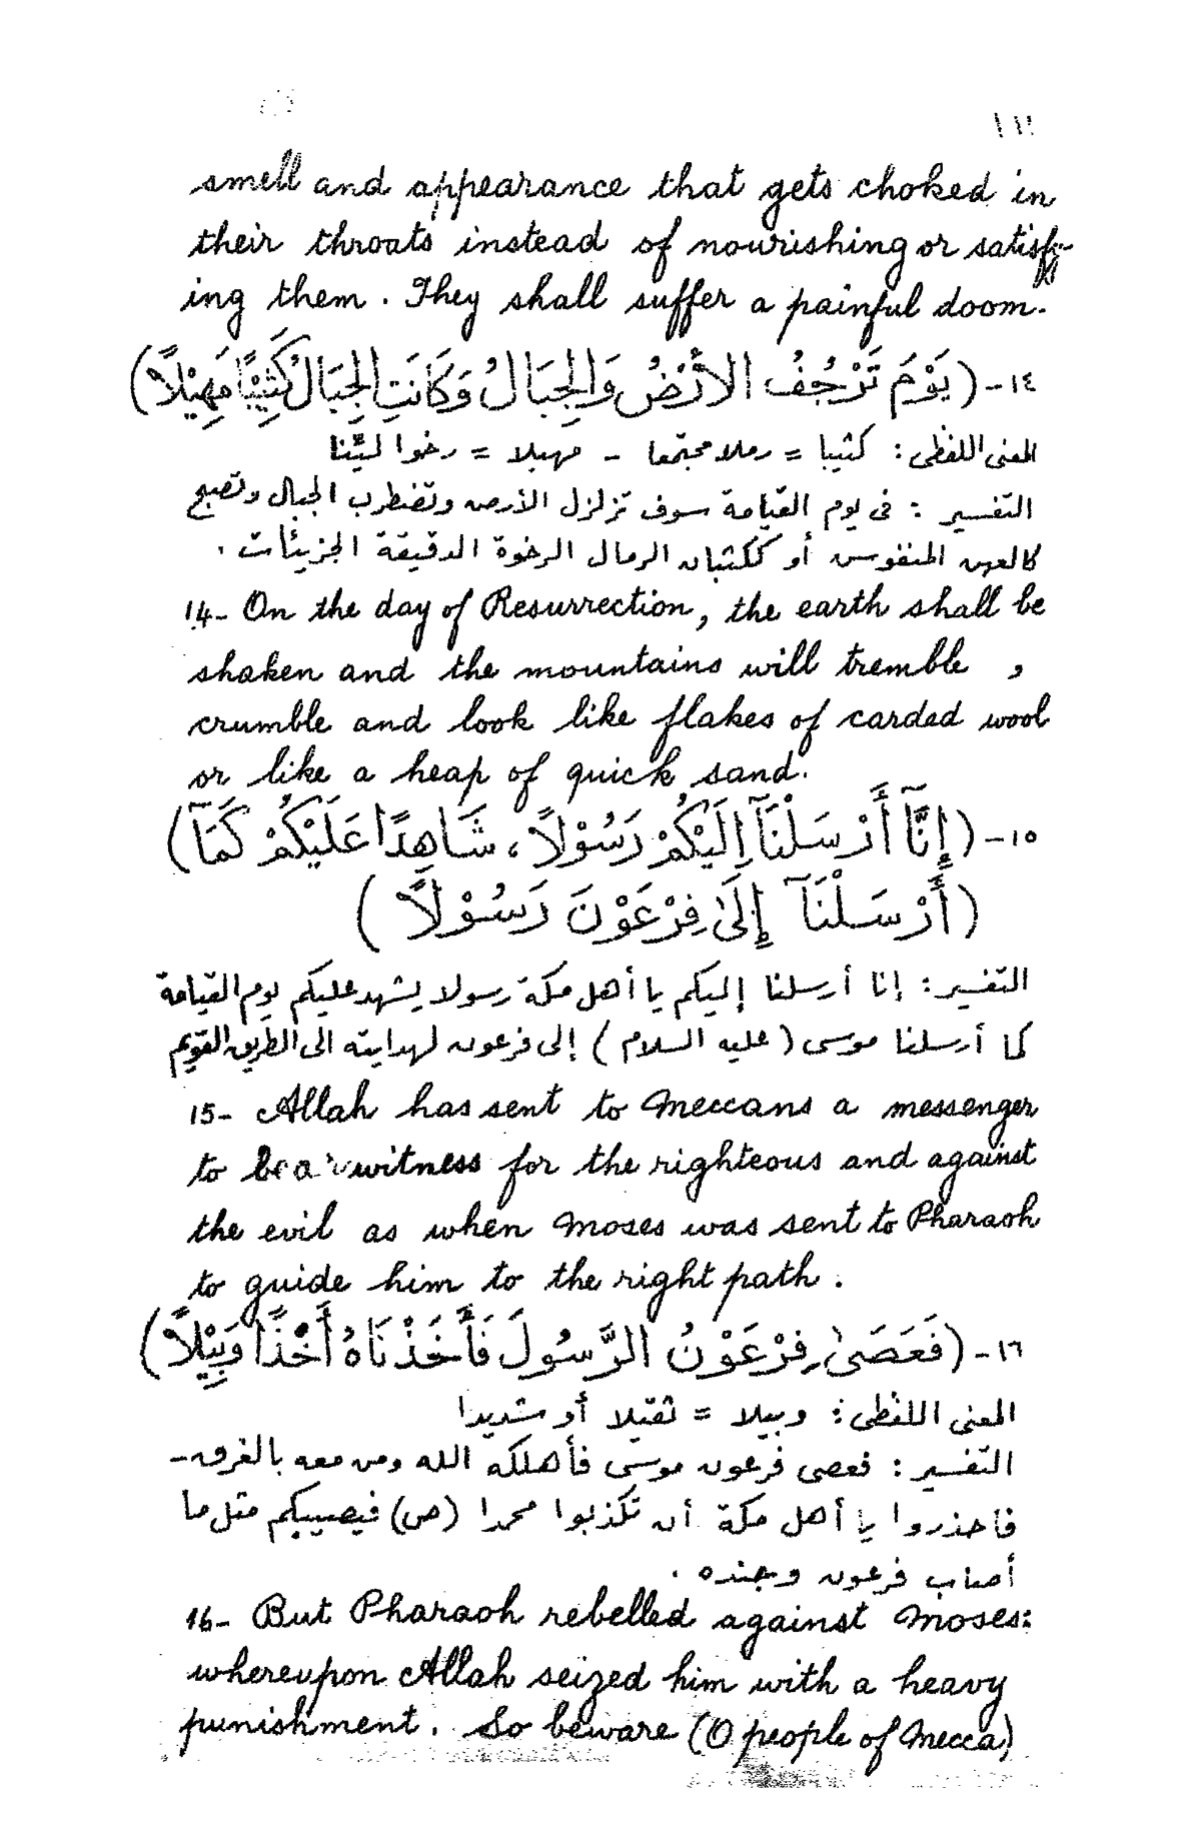 smell and appearance that gets choked in
their throats instead of nourishing or satisfy-
ing them. They shall suffer a painful doom.
١٤- (يَوْمَ تَرْجُفُ الأَرْضُ وَالجِبَالُ وَكَانَتِ الجِبَالُ كَثِيْبًا مَهِيْلاً)
المعنى اللفظى: كثيبا = رملا مجتمعا - مهيلا = رخوا ليِّنا
التفسير: فى يوم القيامة سوف تزلزل الأرض وتضطرب الجبال وتصبح
كالعهن المنفوش أو ككثبان الرمال الرخوة الدقيقة الجزيئات.
14- On the day of Resurrection, the earth shall be
shaken and the mountains will tremble ,
crumble and look like flakes of carded wool
or like a heap of quick sand.
١٥- (إِنَّآ أَرْسَلْنَآ إِلَيْكُمْ رَسُوْلاً، شَاهِدًا عَلَيْكُمْ كَمَآ)
(أَرْسَلْنَآ إِلَىٰ فِرْعَوْنَ رَسُوْلاً)
التفسير: إنا أرسلنا إليكم يا أهل مكة رسولا يشهد عليكم يوم القيامة
كما أرسلنا موسى (عليه السلام) إلى فرعون لهدايته الى الطريق القويم
15- Allah has sent to Meccans a messenger
to be a witness for the righteous and against
the evil as when Moses was sent to Pharaoh
to guide him to the right path.
١٦- (فَعَصَىٰ فِرْعَوْنُ الرَّسُولَ فَأَخَذْنَاهُ أَخْذًا وَبِيْلاً)
المعنى اللفظى: وبيلا = ثقيلا أو شديدا
التفسير: فعصى فرعون موسى فأهلكه الله ومن معه بالغرق-
فاحذروا يا أهل مكة أن تكذبوا محمدا (ص) فيصيبكم مثل ما
أصاب فرعون وجنده.
16- But Pharaoh rebelled against Moses:
whereupon Allah seized him with a heavy
punishment. So beware (O people of Mecca)